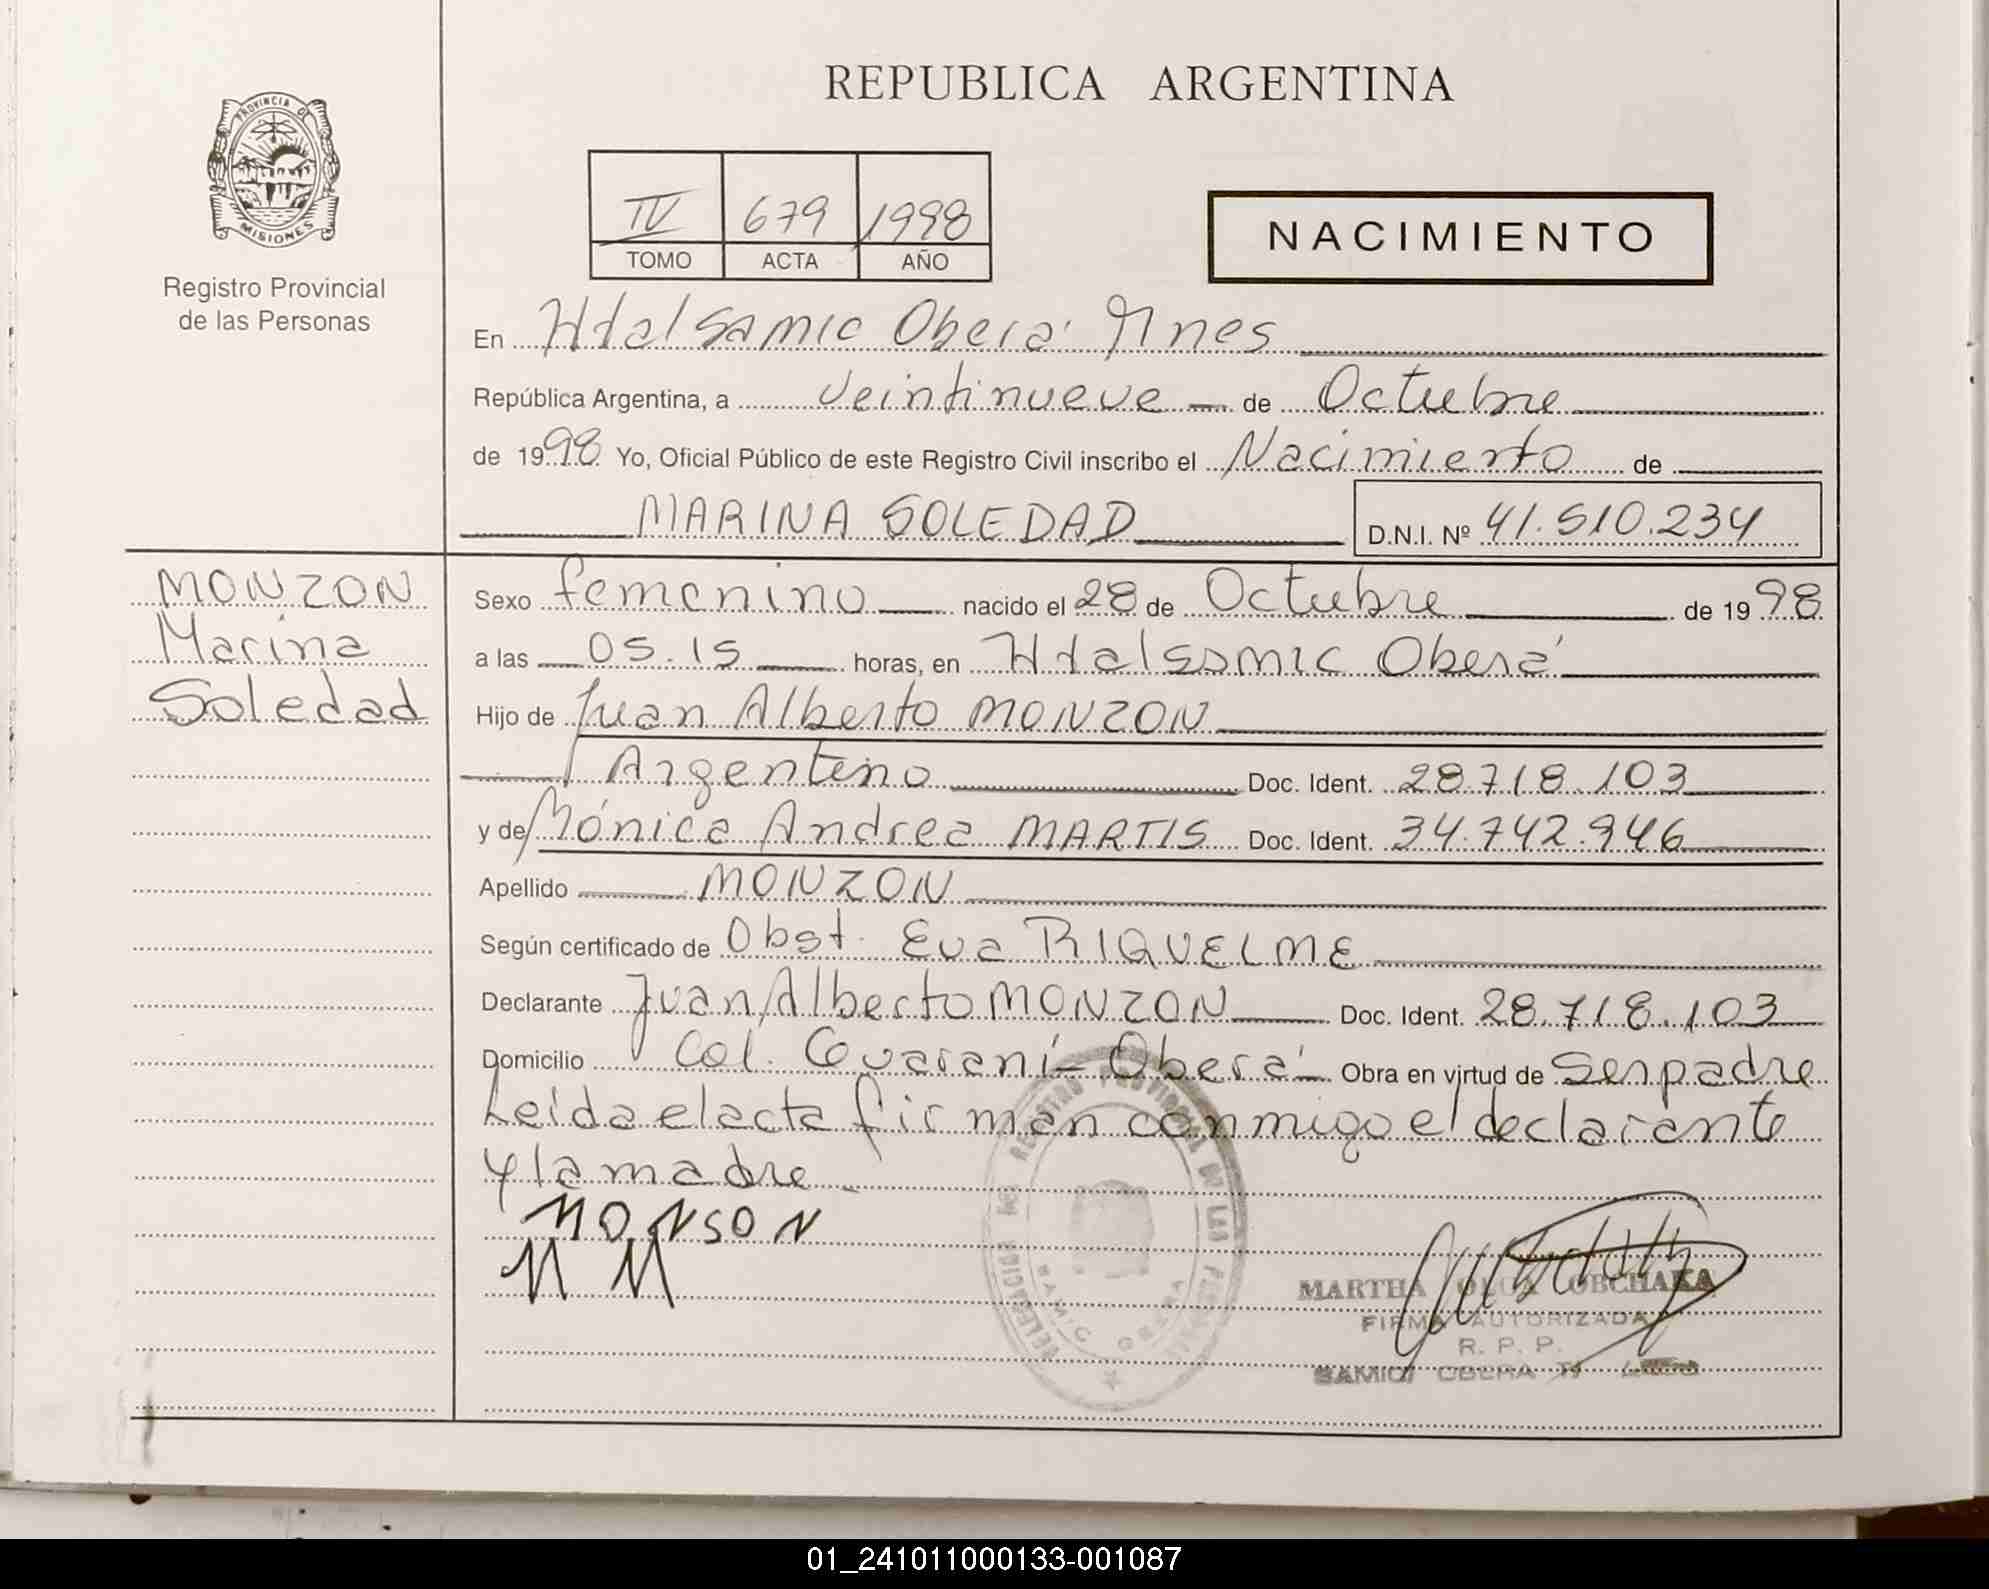 REPUBLICA ARGENTINA
PROVINCIA DE
MISIONES
Registro Provincial
de las Personas
IV 679 1998
TOMO ACTA AÑO
NACIMIENTO
En Htal Samic Oberá Mnes
República Argentina, a veintinueve de Octubre
de 1998 Yo, Oficial Público de este Registro Civil inscribo el Nacimiento de
MARINA SOLEDAD D.N.I. Nº 41.510.234
MONZON
Marina
Soledad
Sexo femenino nacido el 28 de Octubre de 1998
a las 05.15 horas, en Htal Samic Oberá
Hijo de Juan Alberto MONZON
Argentino Doc. Ident. 28.718.103
y de Mónica Andrea MARTIS Doc. Ident. 34.742.946
Apellido MONZON
Según certificado de Obst. Eva RIQUELME
Declarante Juan Alberto MONZON Doc. Ident. 28.718.103
Domicilio Col. Guaraní - Oberá - Obra en virtud de ser padre
Leida el acta firman conmigo el declarante
y la madre -
MONSON
M M
DELEGACION DEL REGISTRO PROVINCIAL DE LAS PERSONAS
SAMIC OBERA
MARTHA OLGA OBCHAKA
FIRMA AUTORIZADA
R. P. P.
SAMIC OBERA
01_241011000133-001087